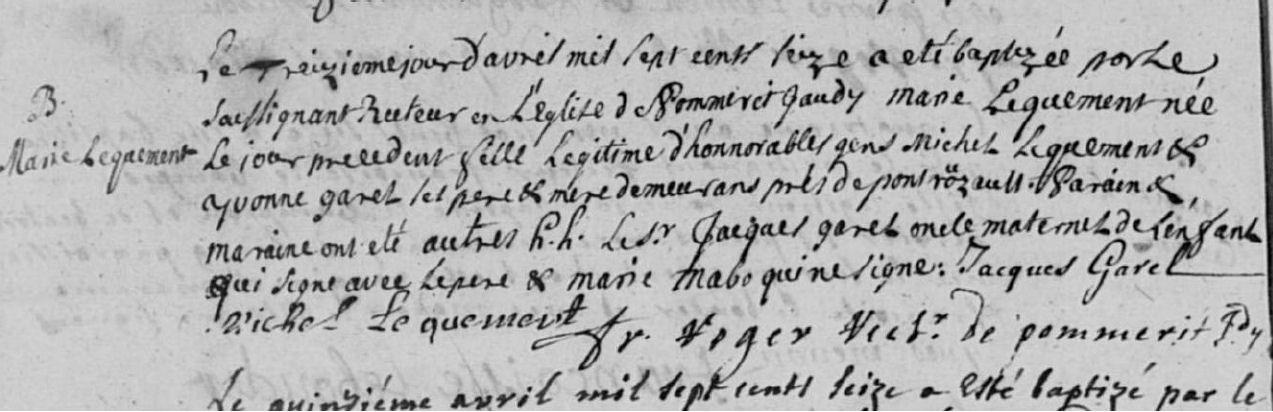 Le treizieme jour d'avril mil sept cents seize a eté baptizée par Le
B.
Soussignant Recteur en L'Eglise de Pommerit Jaudy marie Lequement née
Marie Lequement
Le jour precedent fille Legitime d'honnorables gens Michel Lequement &
yvonne garel ses pere & mere demeurans prés de pont Parain &
maraine ont eté autres h.h. Le s.r Jacques garel oncle maternel de L'énfant
qui signe avec Le pere & marie mabo qui ne signe. Jacques Garel
Michel Lequement fr. de pommerit J.dy
Le quinziéme avril mil sept cents seize a Esté baptizé par le